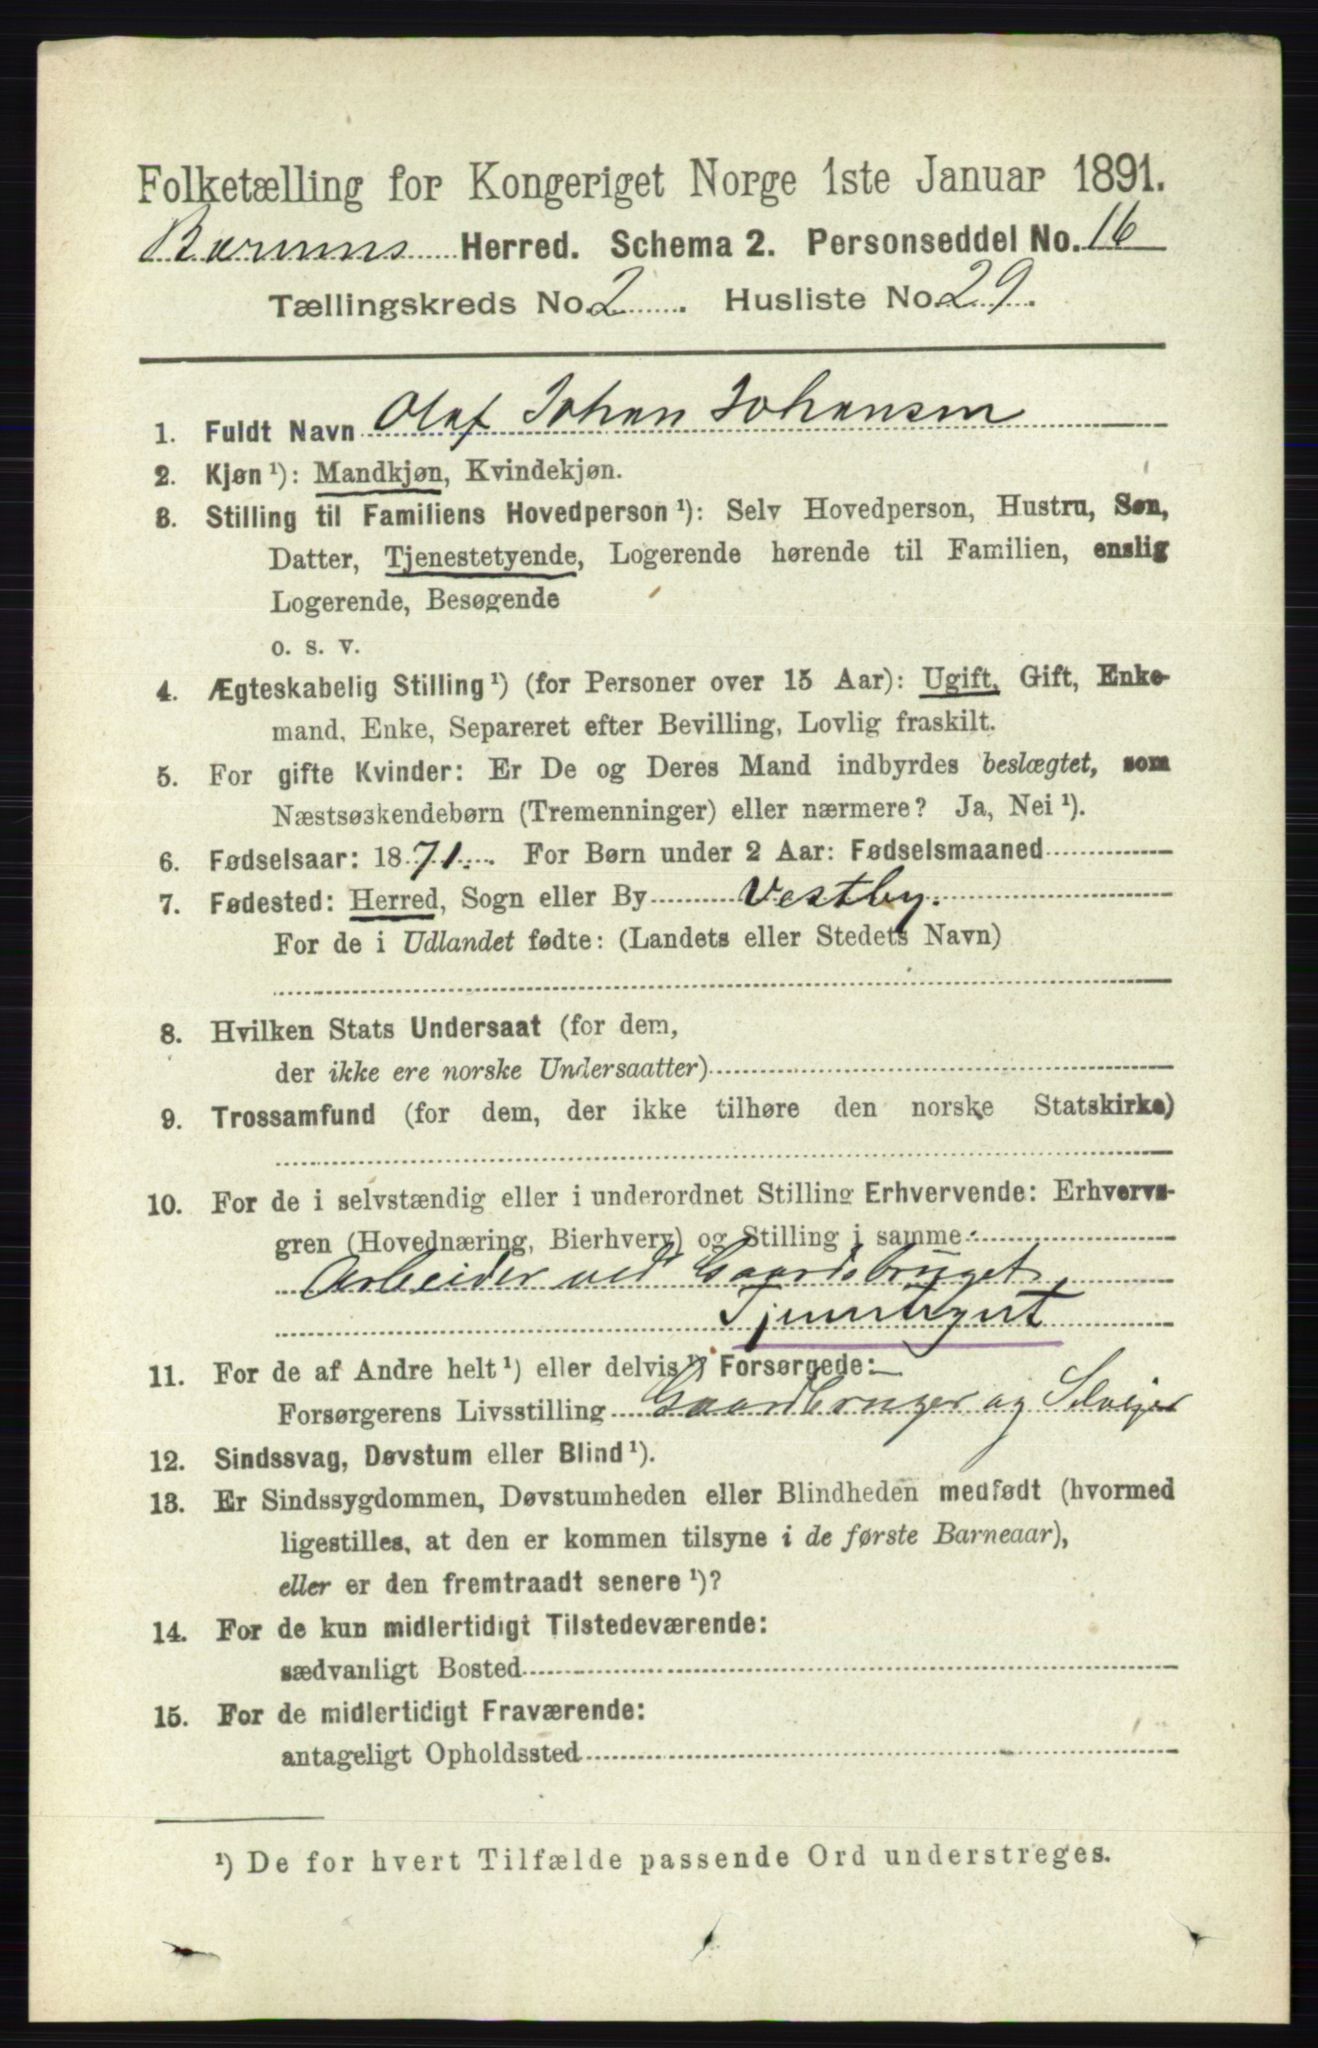 Folketælling for Kongeriget Norge 1ste Januar 1891.
Bærums Herred. Schema 2. Personseddel No. 16
Tællingskreds No. 2. Husliste No. 29.
1. Fuldt Navn Olaf Johan Johansen
2. Kjøn ¹): Mandkjøn, Kvindekjøn.
3. Stilling til Familiens Hovedperson ¹): Selv Hovedperson, Hustru, Søn,
Datter, Tjenestetyende, Logerende hørende til Familien, enslig
Logerende, Besøgende
o. s. v.
4. Ægteskabelig Stilling ¹) (for Personer over 15 Aar): Ugift, Gift, Enke-
mand, Enke, Separeret efter Bevilling, Lovlig fraskilt.
5. For gifte Kvinder: Er De og Deres Mand indbyrdes beslægtet, som
Næstsøskendebørn (Tremenninger) eller nærmere? Ja, Nei ¹).
6. Fødselsaar: 1871. For Børn under 2 Aar: Fødselsmaaned
7. Fødested: Herred, Sogn eller By Vestby.
For de i Udlandet fødte: (Landets eller Stedets Navn)
8. Hvilken Stats Undersaat (for dem,
der ikke ere norske Undersaatter)
9. Trossamfund (for dem, der ikke tilhøre den norske Statskirke)
10. For de i selvstændig eller i underordnet Stilling Erhvervende: Erhvervs-
gren (Hovednæring, Bierhverv) og Stilling i samme:
Arbeider ved Gaardsbruget
11. For de af Andre helt ¹) eller delvis ¹) Forsørgede:
Forsørgerens Livsstilling Gaardbruger og Selveier
12. Sindssvag, Døvstum eller Blind ¹).
13. Er Sindssygdommen, Døvstumheden eller Blindheden medfødt (hvormed
ligestilles, at den er kommen tilsyne i de første Barneaar),
eller er den fremtraadt senere ¹)?
14. For de kun midlertidigt Tilstedeværende:
sædvanligt Bosted
15. For de midlertidigt Fraværende:
antageligt Opholdssted
¹) De for hvert Tilfælde passende Ord understreges.